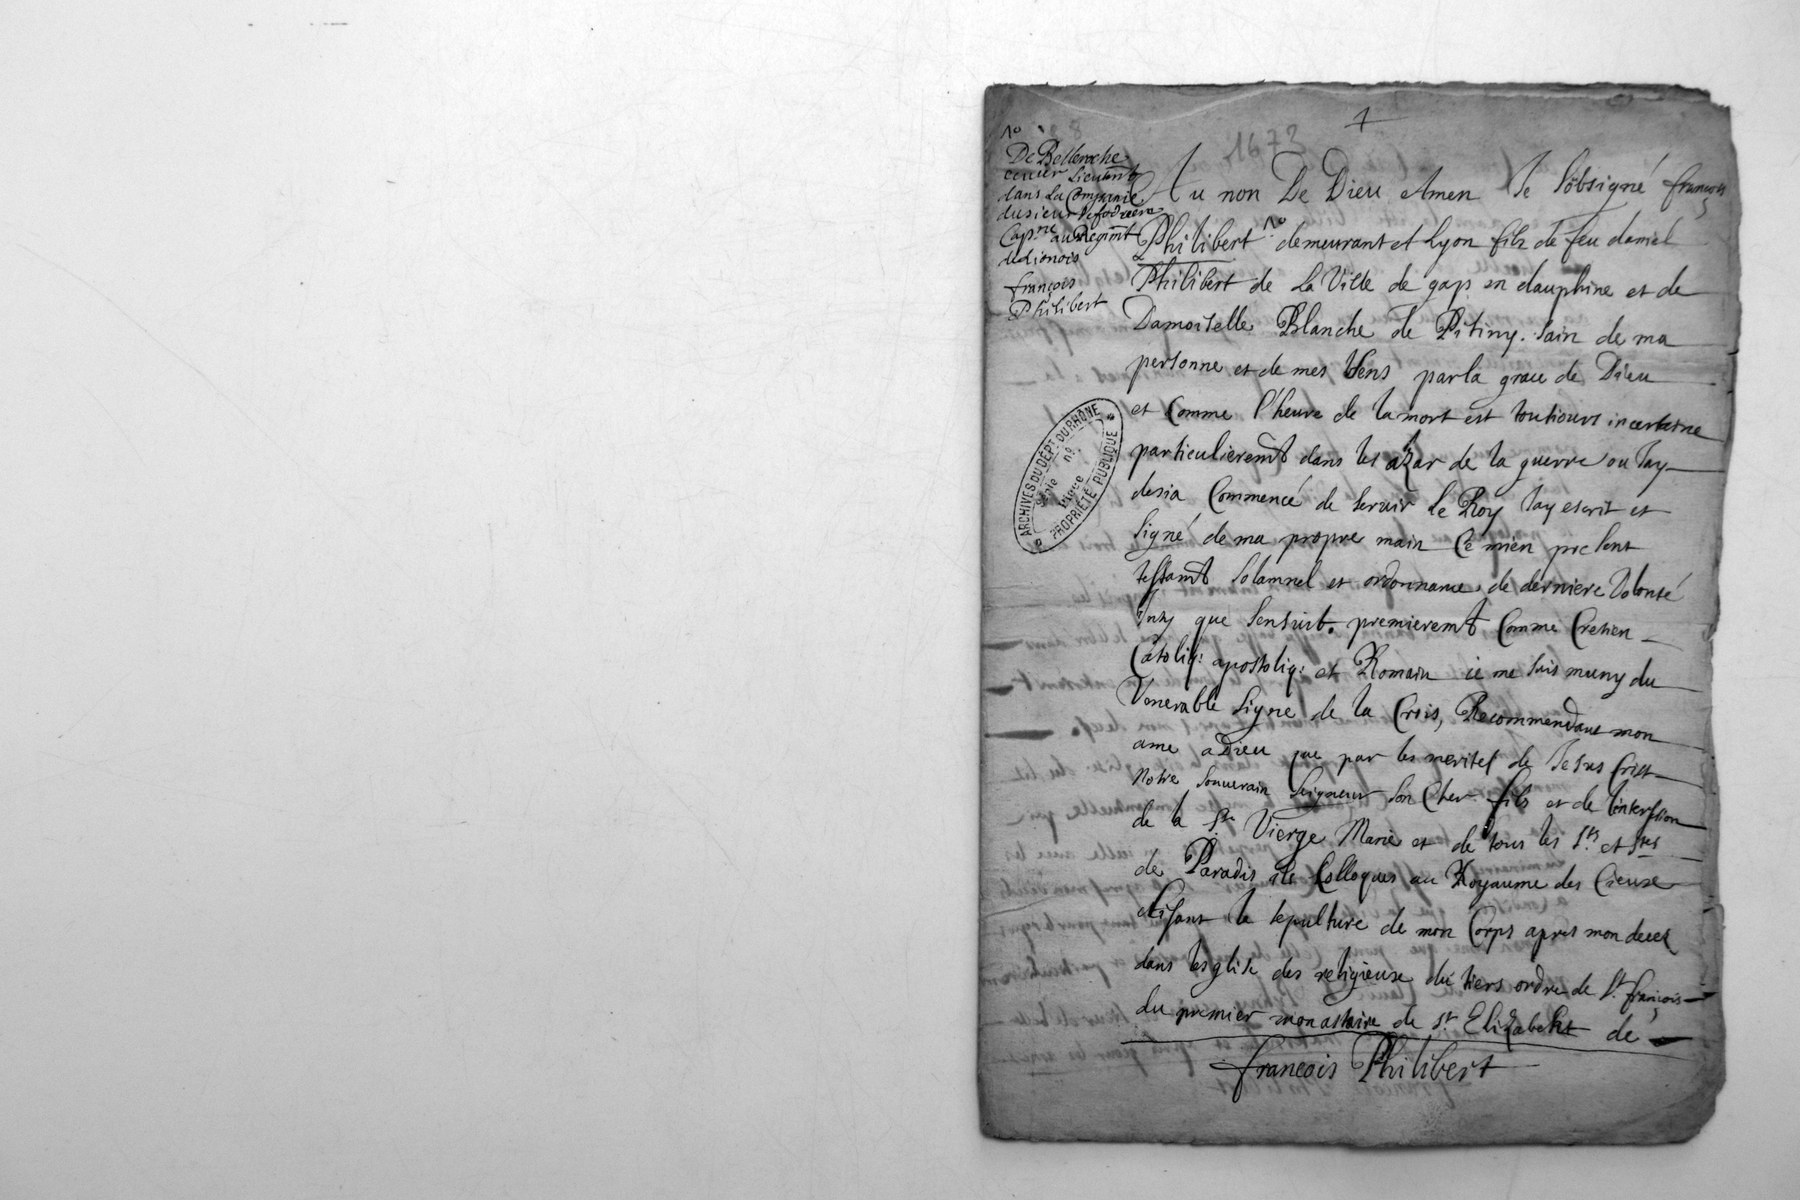 1673
1º
De Belleroche
ecuier Lieutent
dans La Compagnie
du sieur
Capne au Regimt
de Lionois
françois
Philibert
Au non De Dieu Amen Je Sobsigné françois
Philibert 1º demeurant et Lyon filz de feu daniel
Philibert de La Ville de gap en dauphine et de
Damoiselle Blanche de Pitiny. Sain de ma
personne et de mes biens par la grace de Dieu
et Comme l'heure de la mort est touliours incertaine
particulieremt dans les azar de la guerre ou Jay
desia Commencé de servir Le Roy Jay escrit et
Signé de ma propre main Ce mien present
testamt Solamnel et ordonnance de derniere Volonté
que Sensuit. premieremt Comme Cretien
Catoliq: apostoliq: et Romain ie me suis muny du
Venerable Signe de la Crois, Recommendant mon
ame a Dieu que par les merites de Jesus Crist
Notre Souverain Seigneur Son Cher fils et de
de la Ste Vierge Marie et de tous les Sts et Stes
de Paradis Colloques au Royaume des Cieux
elisant la sepulture de mon Corps apres mon deces
dans lesglise des religieuse du tiers ordre de St. françois
du premier monastaire de St Elizabeht de
françois Philibert
ARCHIVES DU DÉPT DU RHÔNE
Série nº
Pièce
PROPRIÉTÉ PUBLIQUE